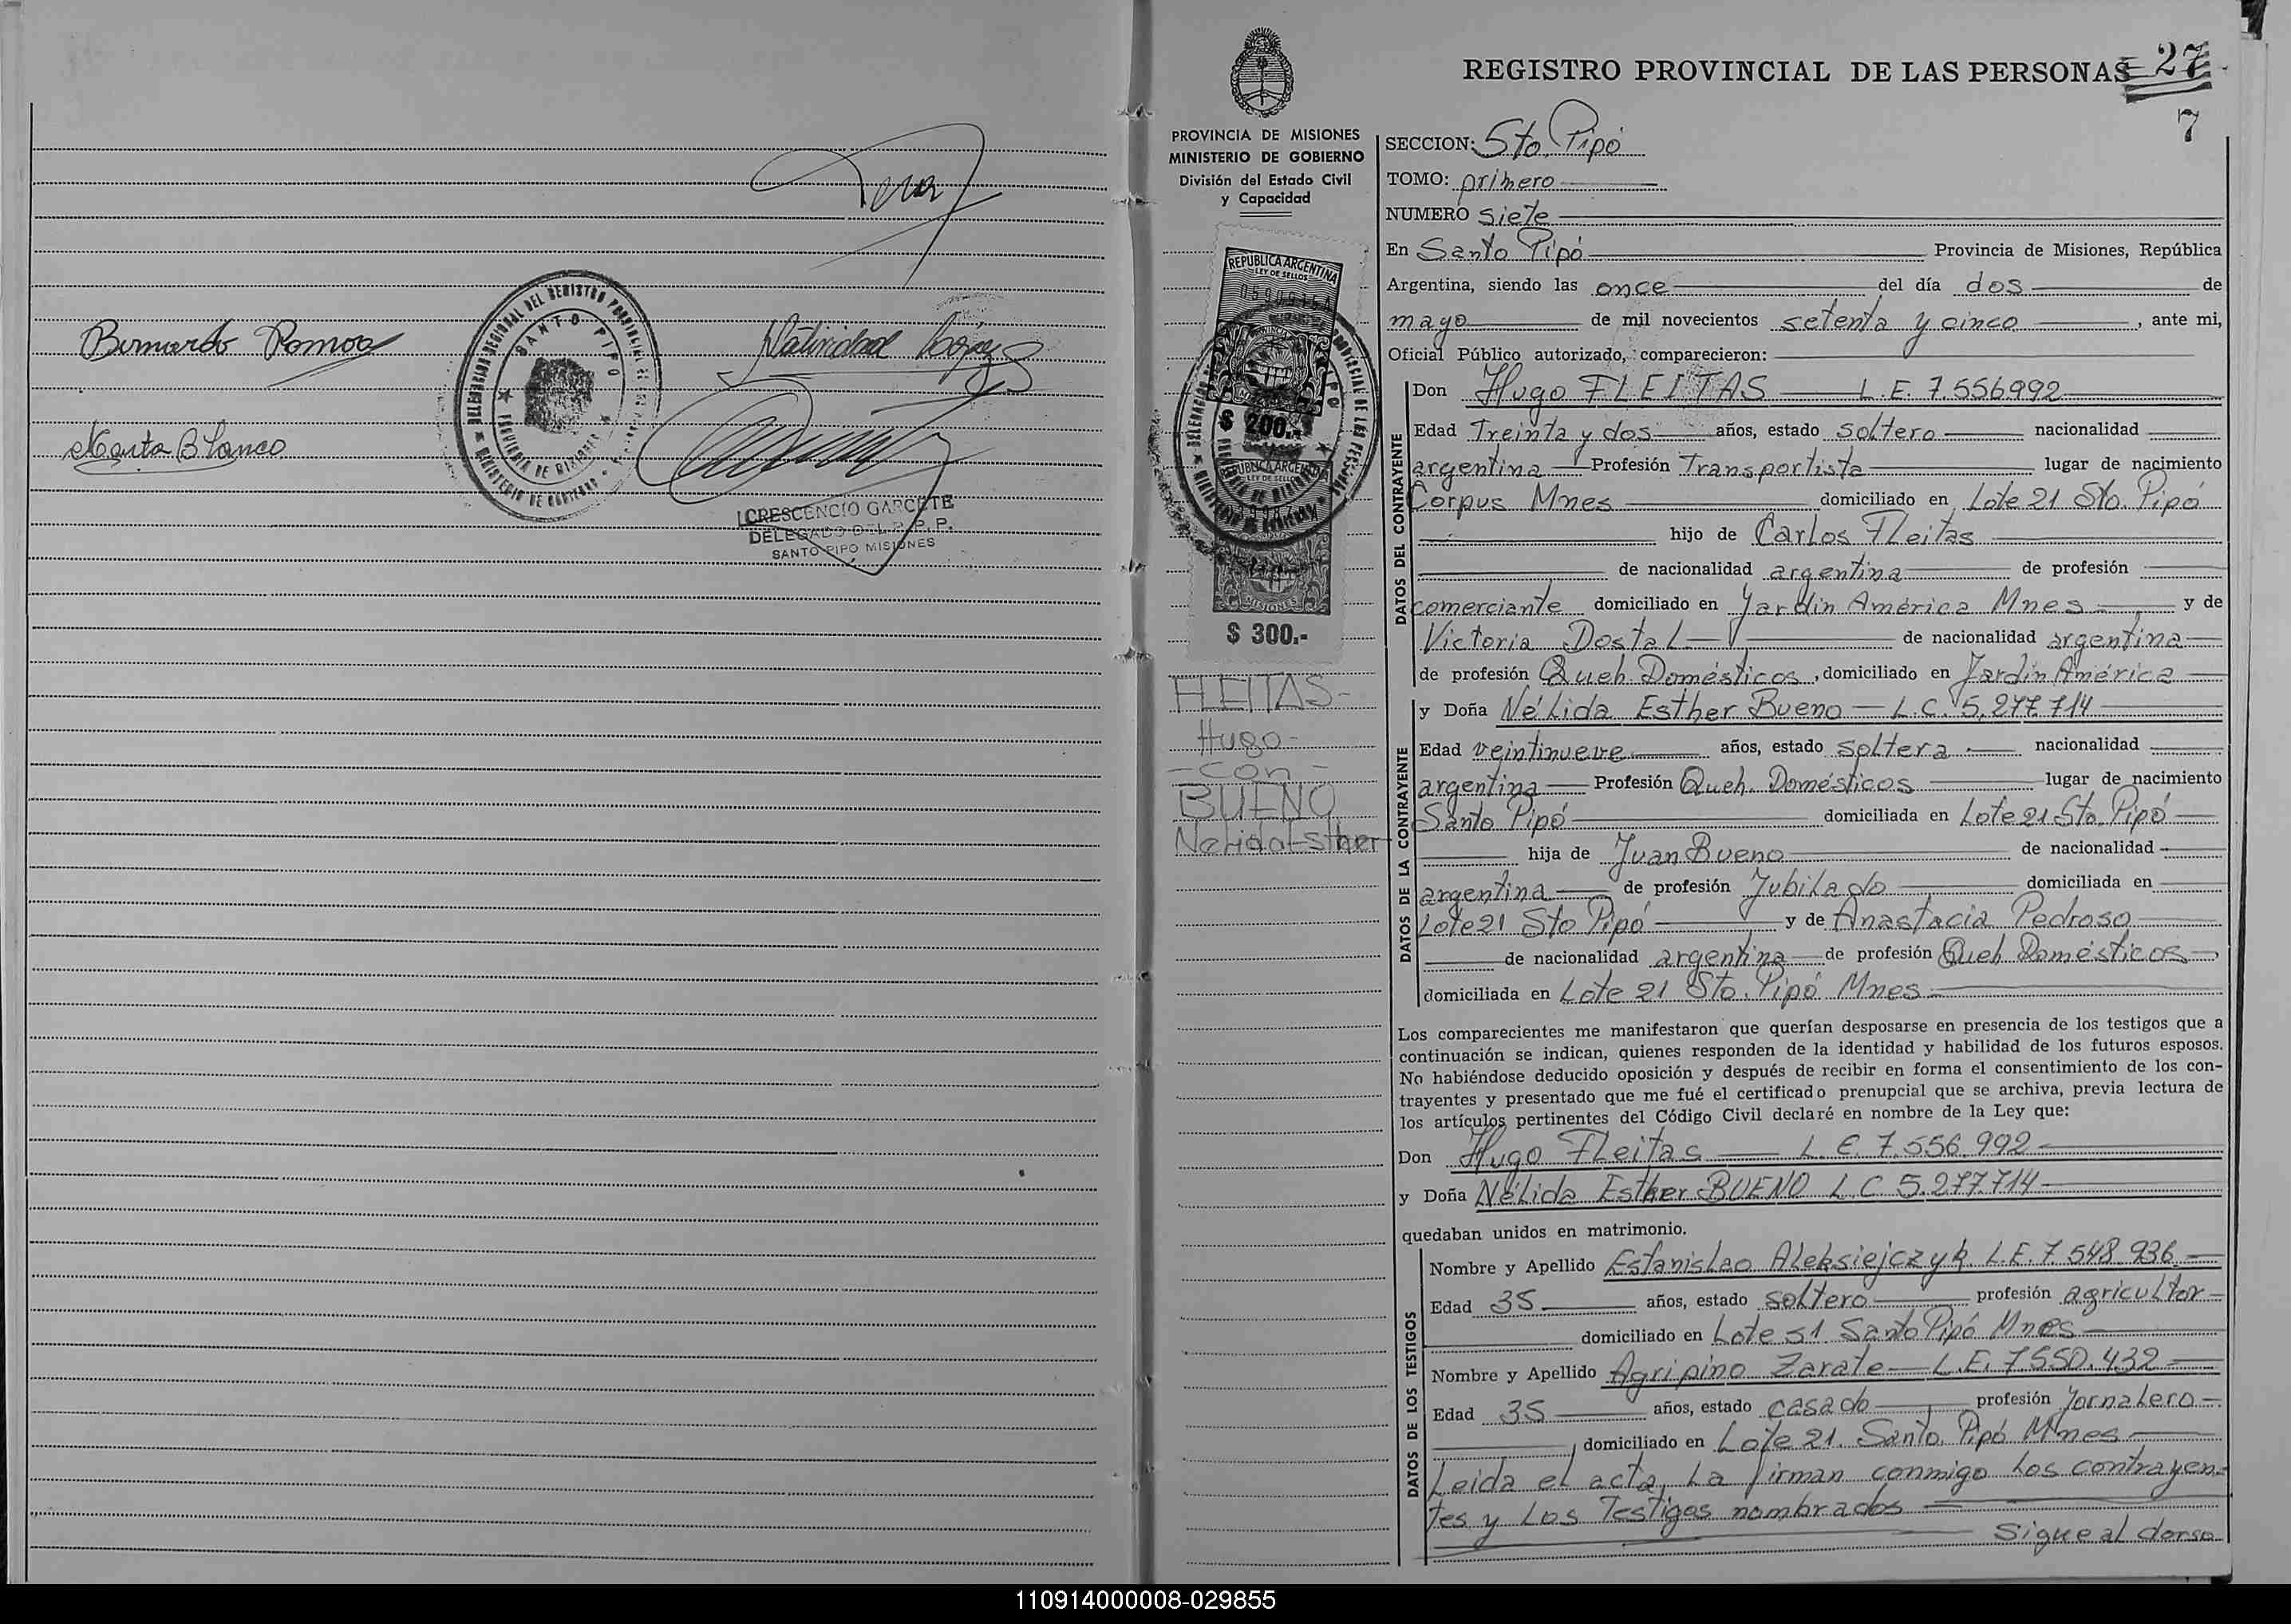 Bernardo Ramos
Marta Blanco
Natividad López
CRESCENCIO GARCETE
DELEGADO DEL R. P. P.
SANTO PIPO MISIONES
DELEGACION REGIONAL DEL REGISTRO PROVINCIAL DE LAS PERSONAS
SANTO PIPO
PROVINCIA DE MISIONES
MINISTERIO DE GOBIERNO
REGISTRO PROVINCIAL DE LAS PERSONAS 27
7
PROVINCIA DE MISIONES
MINISTERIO DE GOBIERNO
División del Estado Civil
y Capacidad
REPUBLICA ARGENTINA
LEY DE SELLOS
$ 200.-
MISIONES
$ 300.-
FLEITAS-
Hugo-
-con-
BUENO
Nelida Esther
SECCION: Sto. Pipó
TOMO: primero
NUMERO siete
En Santo Pipó Provincia de Misiones, República
Argentina, siendo las once del día dos de
mayo de mil novecientos setenta y cinco, ante mi,
Oficial Público autorizado, comparecieron:
DATOS DEL CONTRAYENTE
Don Hugo FLEITAS L.E. 7.556992
Edad Treinta y dos años, estado soltero nacionalidad
argentina Profesión Transportista lugar de nacimiento
Corpus Mnes domiciliado en Lote 21 Sto. Pipó
hijo de Carlos Fleitas
de nacionalidad argentina de profesión
comerciante domiciliado en Jardín América Mnes y de
Victoria Dostal de nacionalidad argentina
de profesión Queh. Domésticos, domiciliado en Jardín América
DATOS DE LA CONTRAYENTE
y Doña Nélida Esther Bueno — L.C. 5.277.714
Edad veintinueve años, estado soltera nacionalidad
argentina Profesión Queh. Domésticos lugar de nacimiento
Santo Pipó domiciliada en Lote 21 Sto. Pipó
hija de Juan Bueno de nacionalidad
argentina de profesión Jubilado domiciliada en
Lote 21 Sto Pipó y de Anastacia Pedroso
de nacionalidad argentina de profesión Queh Domésticos,
domiciliada en Lote 21 Sto. Pipó Mnes
Los comparecientes me manifestaron que querían desposarse en presencia de los testigos que a
continuación se indican, quienes responden de la identidad y habilidad de los futuros esposos.
No habiéndose deducido oposición y después de recibir en forma el consentimiento de los con-
trayentes y presentado que me fué el certificado prenupcial que se archiva, previa lectura de
los artículos pertinentes del Código Civil declaré en nombre de la Ley que:
Don Hugo Fleitas — L.E. 7.556.992
y Doña Nélida Esther BUENO L.C. 5.277.714
quedaban unidos en matrimonio.
DATOS DE LOS TESTIGOS
Nombre y Apellido Estanislao Aleksiejczyk. L.E. 7.548.936
Edad 35 años, estado soltero profesión agricultor
domiciliado en Lote 51 Santo Pipó Mnes
Nombre y Apellido Agripino Zarate — L.E. 7550.432
Edad 35 años, estado casado profesión Jornalero
domiciliado en Lote 21. Santo. Pipó Mnes
Leida el acta, la firman conmigo los contrayen-
tes y los Testigos nombrados
Sigue al dorso
110914000008-029855